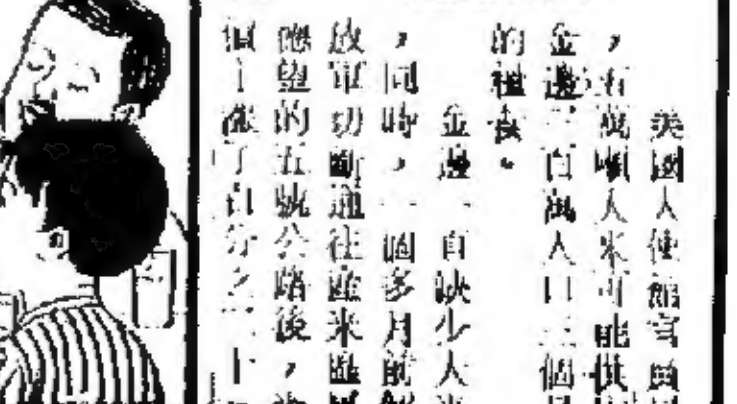 美國大使館官員
，五萬噸大米可能供
金邊二百萬人口三個
的糧食。
金邊一直缺少大米
，同時，一個多月前解
放軍切斷通往產米區
德望的五號公路後，米
價上漲了百分之二十